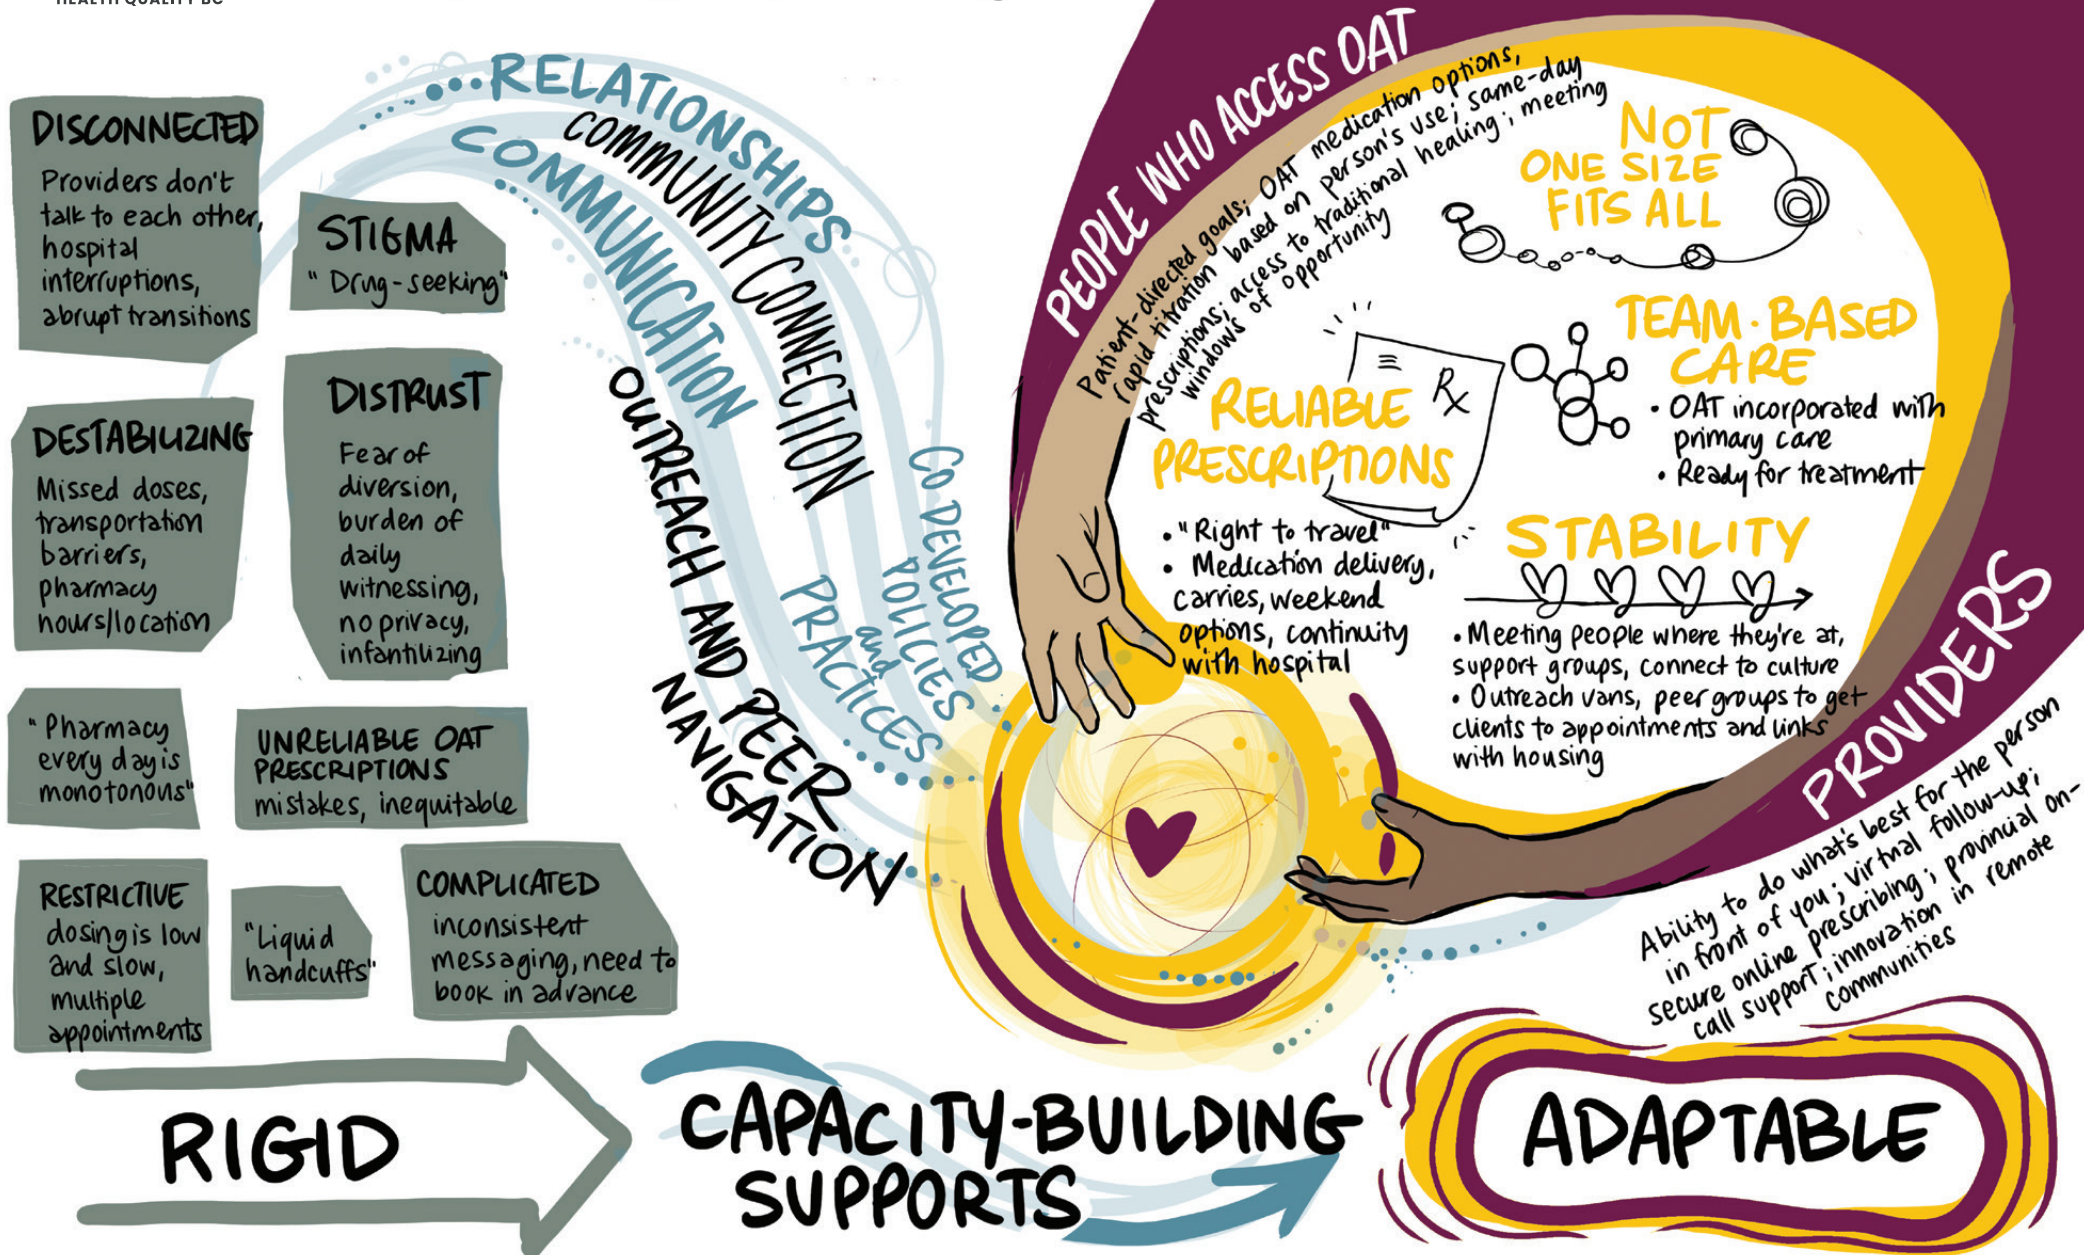 HEALTH QUALITY BC
DISCONNECTED
Providers don't
talk to each other,
hospital
interruptions,
abrupt transitions
STIGMA
"Drug-seeking"
DESTABILIZING
Missed doses,
transportation
barriers,
pharmacy
hours/location
DISTRUST
Fear of
diversion,
burden of
daily
witnessing,
no privacy,
infantilizing
"Pharmacy
every day is
monotonous"
UNRELIABLE OAT
PRESCRIPTIONS
mistakes, inequitable
RESTRICTIVE
dosing is low
and slow,
multiple
appointments
"Liquid
handcuffs"
COMPLICATED
inconsistent
messaging, need to
book in advance
RIGID
RELATIONSHIPS
COMMUNITY CONNECTION
COMMUNICATION
OUTREACH AND PEER
NAVIGATION
CO DEVELOPED
POLICIES
and
PRACTICES
CAPACITY-BUILDING
SUPPORTS
PEOPLE WHO ACCESS OAT
Patient-directed goals; OAT medication options,
rapid titration based on person's use; same-day
prescriptions; access to traditional healing; meeting
windows of opportunity
NOT
ONE SIZE
FITS ALL
TEAM-BASED
CARE
• OAT incorporated with
primary care
• Ready for treatment
RELIABLE
PRESCRIPTIONS
Rx
• "Right to travel"
• Medication delivery,
carries, weekend
options, continuity
with hospital
STABILITY
• Meeting people where they're at,
support groups, connect to culture
• Outreach vans, peer groups to get
clients to appointments and links
with housing
PROVIDERS
Ability to do what's best for the person
in front of you; virtual follow-up;
secure online prescribing; provincial on-
call support; innovation in remote
communities
ADAPTABLE